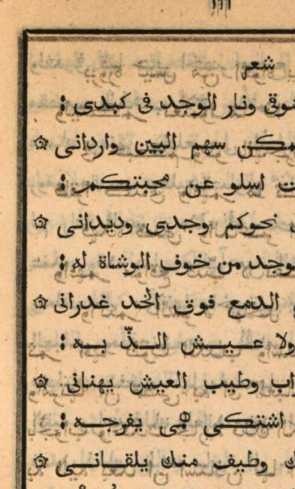 ١١١
شعر
ونار الوجد في كبدي :
سهم البين وارداني ۞
اسلو عن محبتكم :
نحوكم وجدي وديداني ۞
من خوف الوشاة له :
الدمع فوق الخد غدراني ۞
ولا عيش الذ به :
وطيب العيش يهناني ۞
اشتكي همي يفرجه :
وطيف منك يلقاني ۞